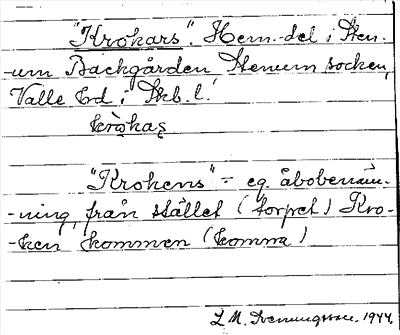 "Krokars". Hem-del i Sten-
-um Backgården Stenum socken,
Valle hd i Skb. l.
kròkaş
"Krokens" = eg. åbobenäm-
-ning från stället (torpet) Kro-
-ken kommen (komma)
L M. Svenungsson. 1944.